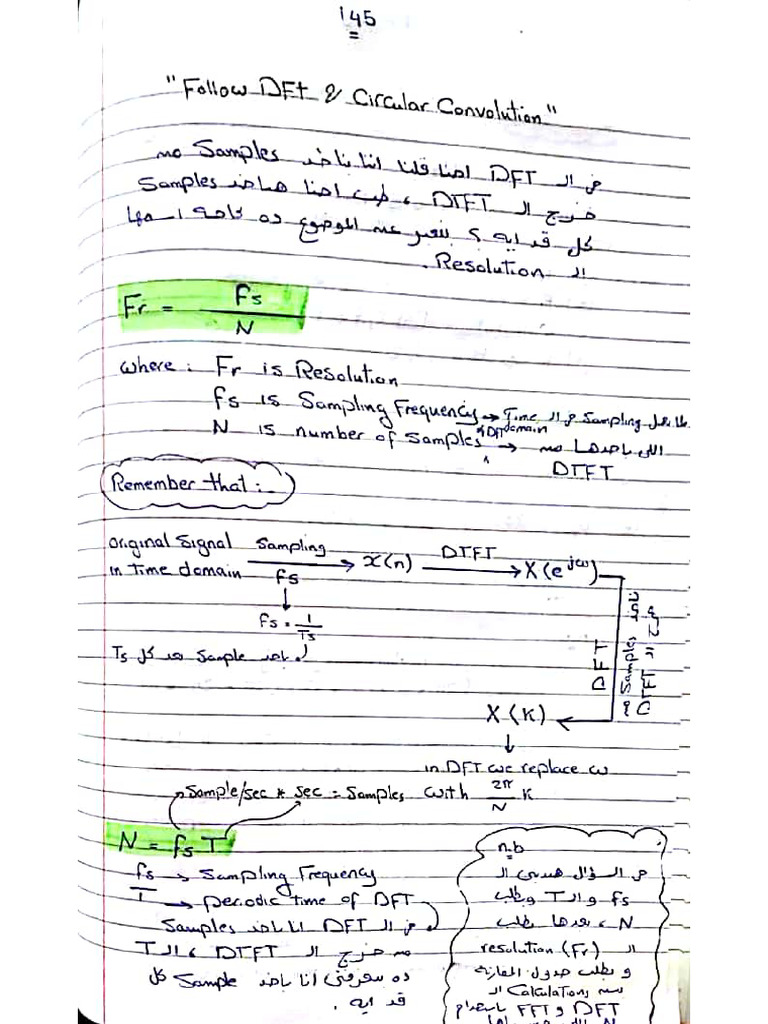 145
"Follow DFt & Circular Convolution"
في الـ DFT احنا قلنا اننا بناخد Samples من
خرج الـ DTFT ، طيب احنا هناخد Samples
كل قد ايه ؟ بنعبر عن الموضوع ده بحاجة اسمها
الـ Resolution .
Fr = fs / N
where: Fr is Resolution
fs is Sampling Frequency → Time الـ في Sampling
domain
N is number of samples → اللى باخدها من
DTFT
Remember that :-
original Signal in Time domain Sampling fs → x(n) DTFT → X(e^jω)
fs = 1/Ts
باخد Sample عند كل Ts
DFT
Samples
DTFT الـ
X(K)
in DFT we replace ω
with 2π/N K
Sample/sec * sec = Samples
N = fs T
fs → Sampling Frequency
T → periodic time of DFT
في الـ DFT انا باخد Samples
من خرج الـ DTFT ، الـ T
ده بيعرفنى انا باخد Sample كل
قد ايه .
n.b
في السؤال هيدينى الـ
fs و الـ T ويطلب
N ، بعدها يطلب
الـ resolution (Fr)
و يطلب جدول المقارنة
بين الـ Calculations
DFT و FFT باستخدام